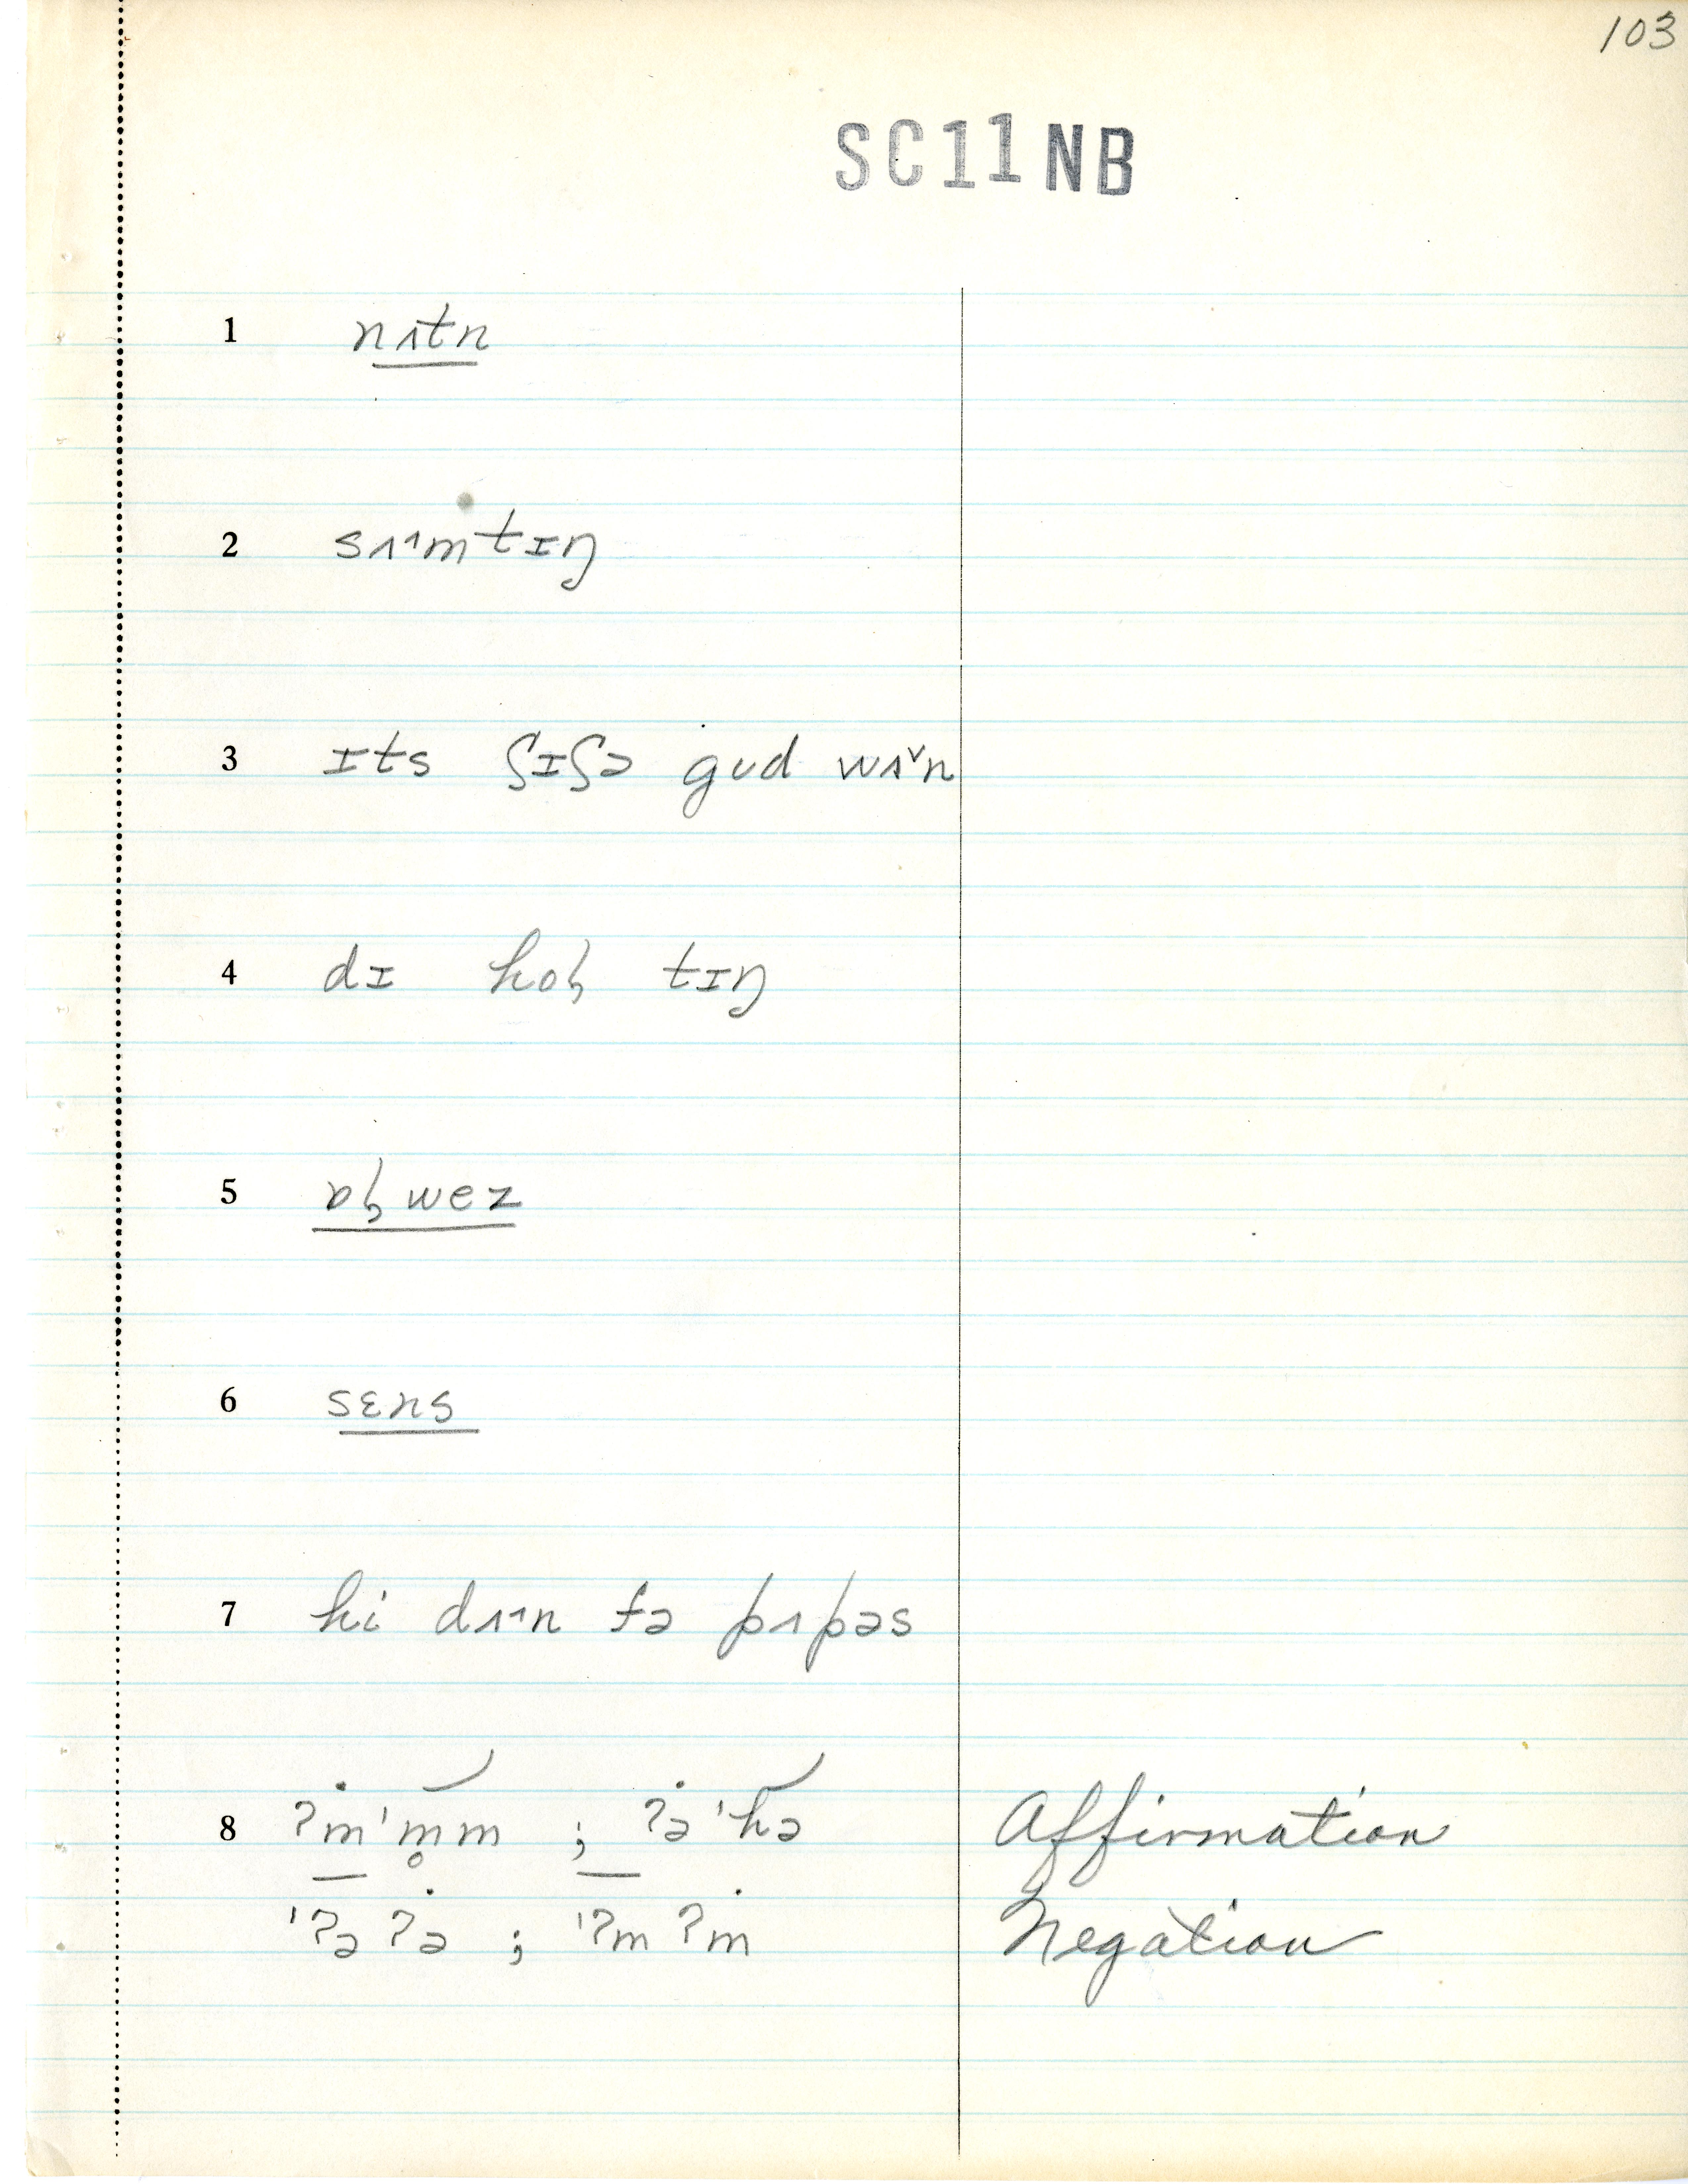 103
SC11NB
1 nʌtn
2 sʌ˄mtɪŋ
3 ɪts ʃɪʃə gʊd wʌ˅n
4 dɪ hoɫ tɪŋ
5 ɒɫwez
6 sɛns
7 hi dʌ˄n fə pʌpəs
8 ʔm'm̥m ; ʔə'hə Affirmation
'ʔəʔə ; 'ʔmʔm Negation